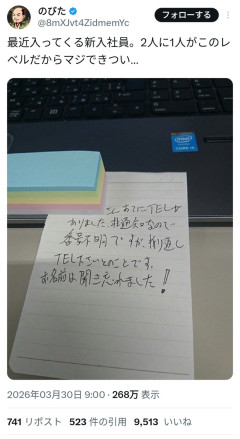 のびた
@8mXJvt4ZidmemYc
フォローする
最近入ってくる新入社員。2人に1人がこのレ
ベルだからマジできつい...
intel
さんあてにTELが
ありました。非通知なので
番号不明ですが、折り返し
TEL下さいとのことです。
お名前は聞き忘れました!
2026年03月30日 9:00 · 268万 表示
741 リポスト 523 件の引用 9,513 いいね